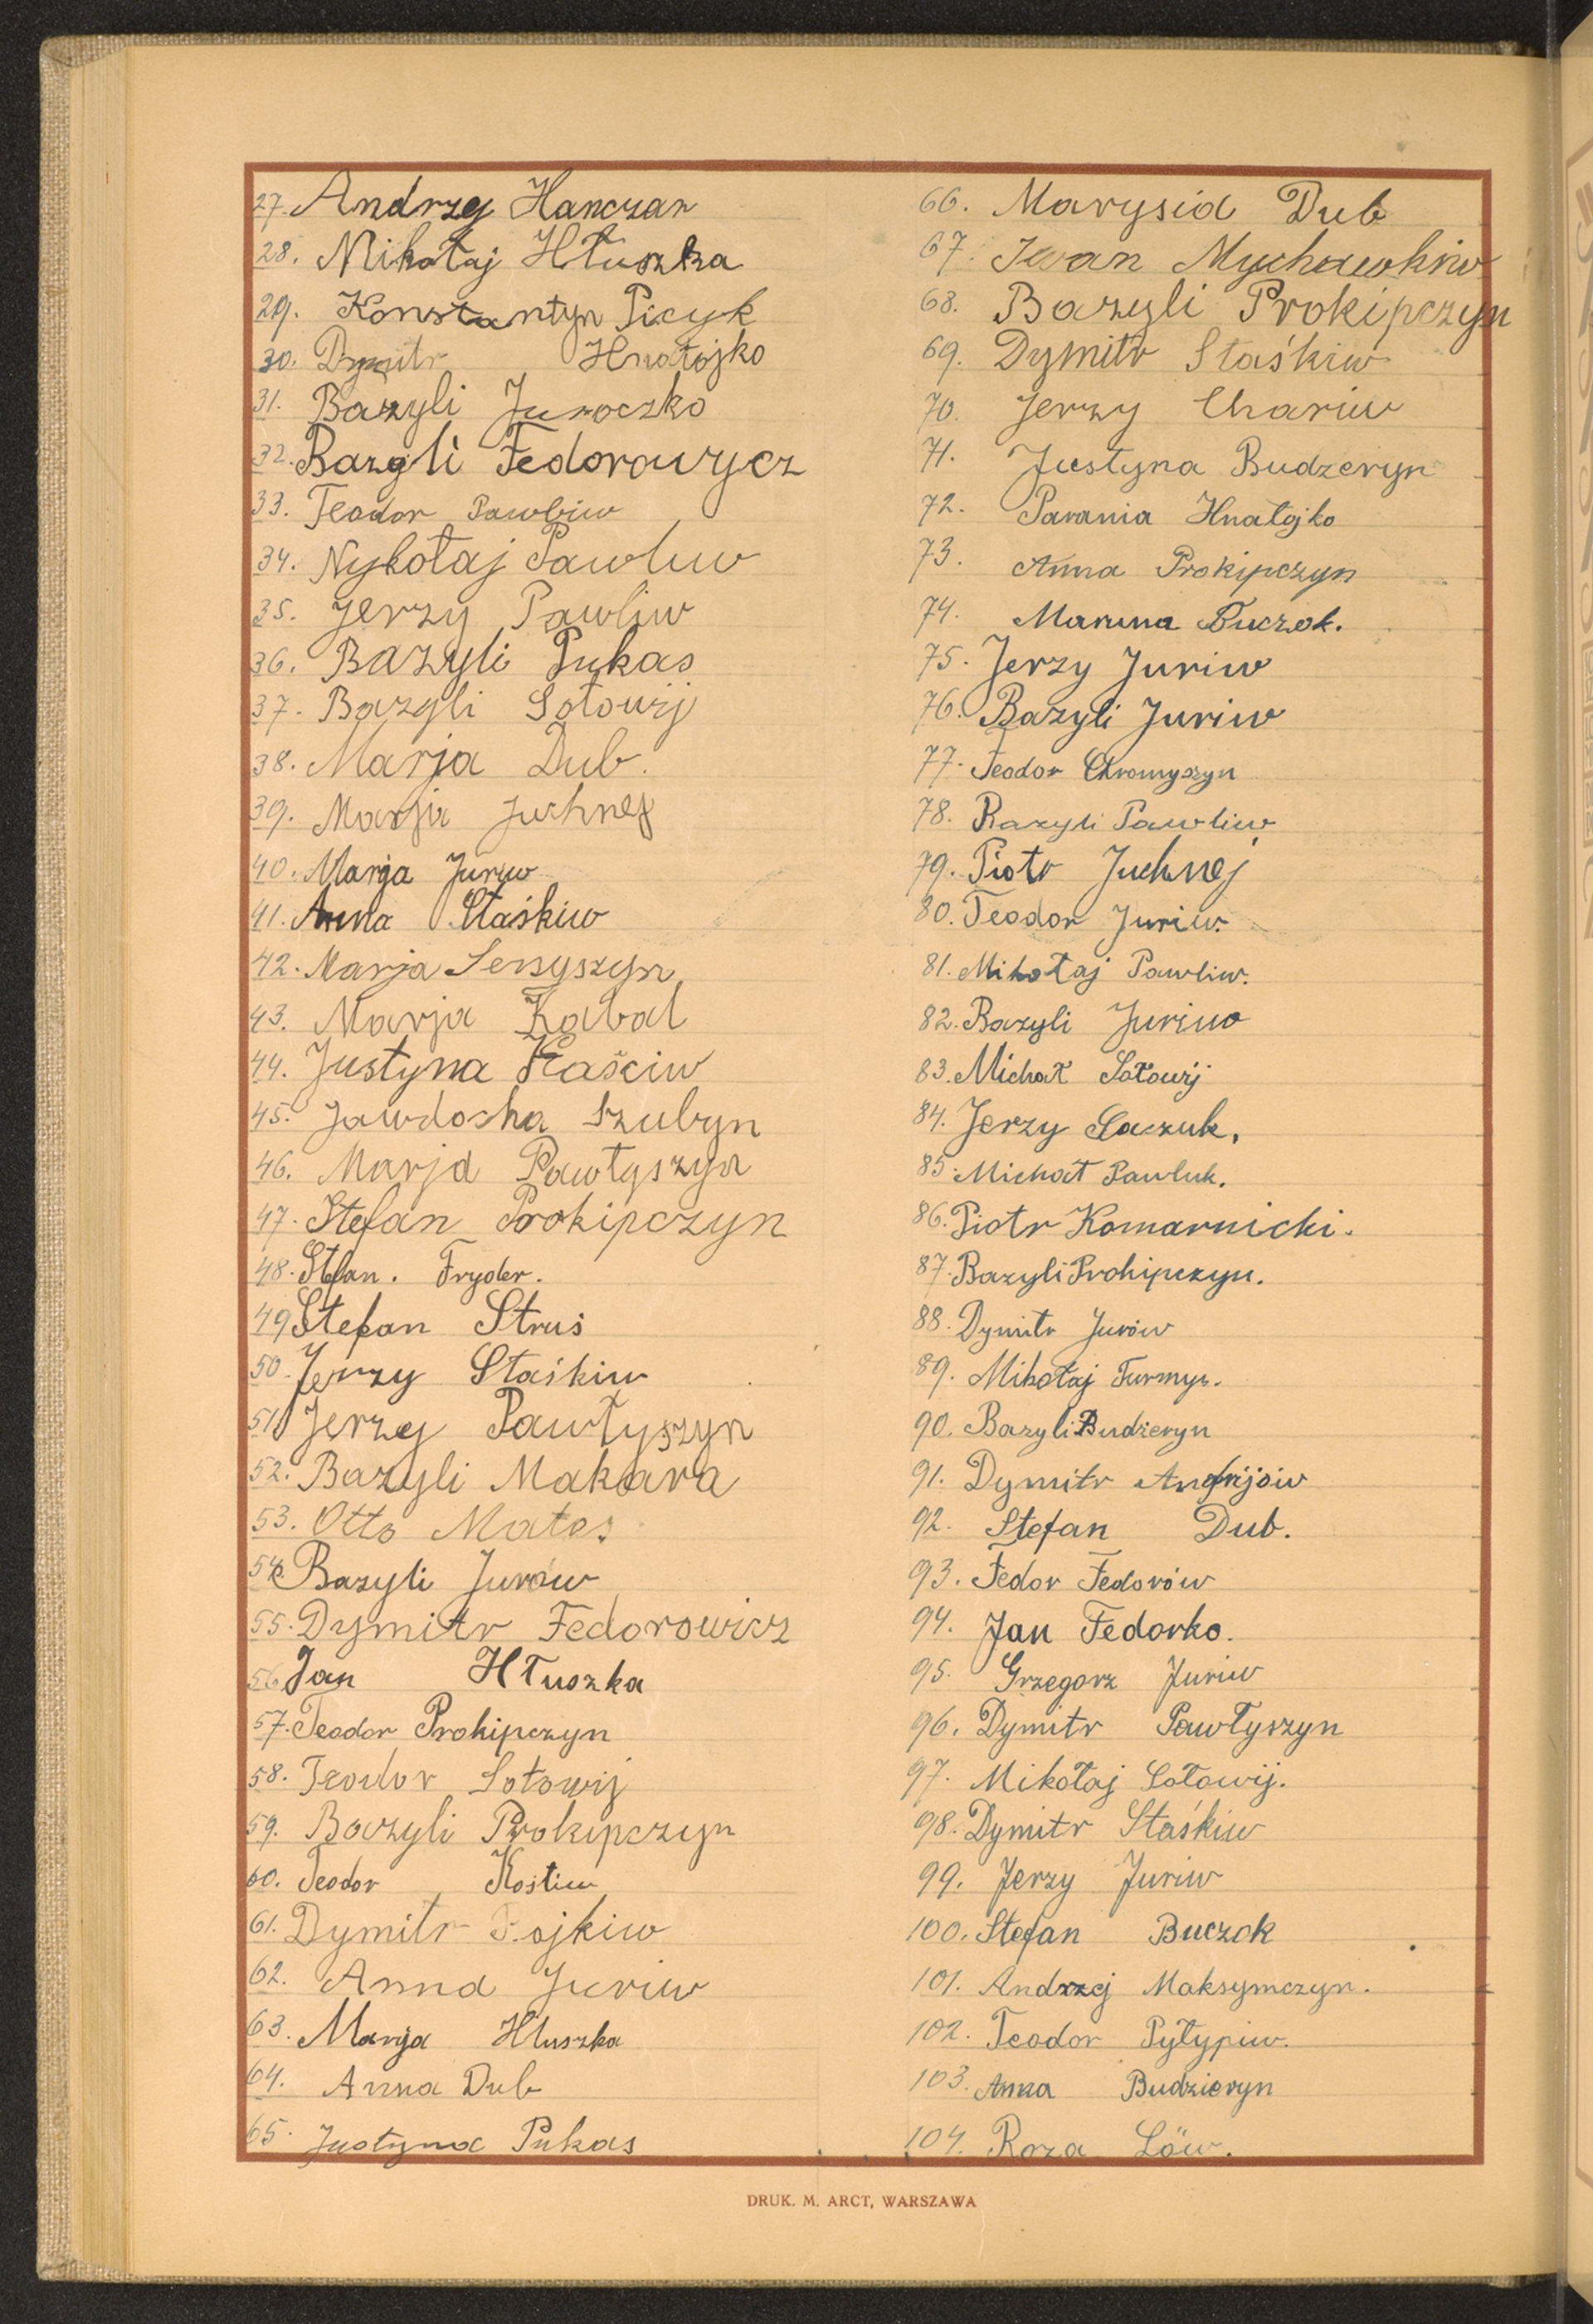 27. Andrzej Hanczar
28. Mikołaj Hłuszka
29. Konstantyn Picyk
30. Dymitr Hnatojko
31. Bazyli Juroczko
32. Bazyli Fedorowycz
33. Teodor Pawliw
34. Nykołaj Pawluw
35. Jerzy Pawliw
36. Bazyli Pukas
37. Bazyli Sołowij
38. Marja Dub.
39. Marja Juchnej
40. Marja Juryw
41. Anna Staśkiw
42. Marja Senyszyn
43. Marja Kabal
44. Justyna
45. Jawdocha Szubyn
46. Marja Pawłyszyn
47. Stefan Prokipczyn
48. Stefan. Fryder.
49 Stefan Struś
50. Jerzy Staśkiw
51. Jerzy Pawłyszyn
52. Bazyli Makara
53. Otto Mates
54. Bazyli Jurów
55. Dymitr Fedorowicz
56 Jan Hłuszka
57. Teodor Prokipczyn
58. Teodor Sołowij
59. Bazyli Prokipczyn
60. Teodor Kostiw
61. Dymitr Fojkiw
62. Anna Juriw
63. Marja Hłuszka
64. Anna Dub
65. Justyna Pukas
66. Marysia Dub
67. Iwan
68. Bazyli Prokipczyn
69. Dymitr Staśkiw
70. Jerzy Chariw
71. Justyna Budzeryn
72. Parania Hnatojko
73. Anna Prokipczyn
74. Maryna Buczok.
75. Jerzy Juriw
76. Bazyli Juriw
77. Teodor Chromyszyn
78. Bazyli Pawliw
79. Piotr Juchnej
80. Teodor Juriw.
81. Mikołaj Pawliw.
82. Bazyli Juriw
83. Michał Sołowij
84. Jerzy Saczuk.
85. Michał Pawluk.
86. Piotr Komarnicki.
87. Bazyli Prokipczyn.
88. Dymitr Jurów
89. Mikołaj Furmyr.
90. Bazyli Budzeryn
91. Dymitr Andrijów
92. Stefan Dub.
93. Fedor Fedorów
94. Jan Fedorko.
95. Grzegorz Juriw
96. Dymitr Pawłyszyn
97. Mikołaj Sołowij.
98. Dymitr Staśkiw
99. Jerzy Juriw
100. Stefan Buczok
101. Andrzej Maksymczyn.
102. Teodor Pyłypiw.
103. Anna Budzieryn
104. Roza Löw.
DRUK. M. ARCT, WARSZAWA